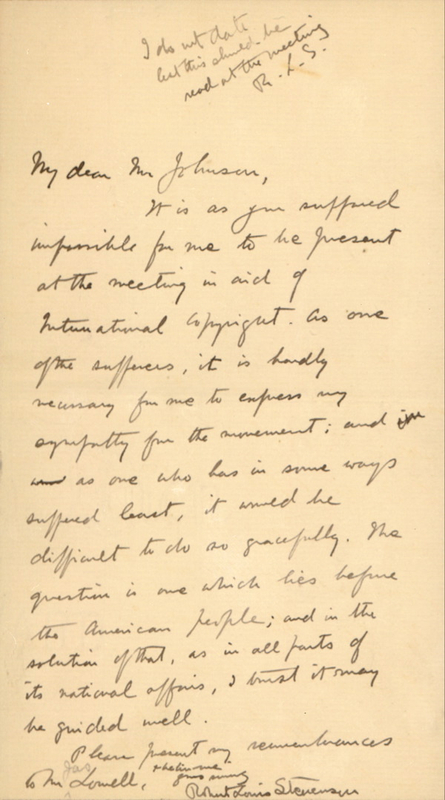 I do not date
lest this should be
read at the meeting
R. L. S.
My dear Mr Johnson,
It is as you supposed
impossible for me to be present
at the meeting in aid of
International Copyright. As one
of the sufferers, it is hardly
necessary for me to express my
sympathy for the movement; and
as one who has in some ways
suffered least, it would be
difficult to do so gracefully. The
question is one which lies before
the American people; and in the
solution of that, as in all parts of
its national affairs, I trust it may
be guided well.
Please present my remembrances
to Mr Lowell,
Robert Louis Stevenson